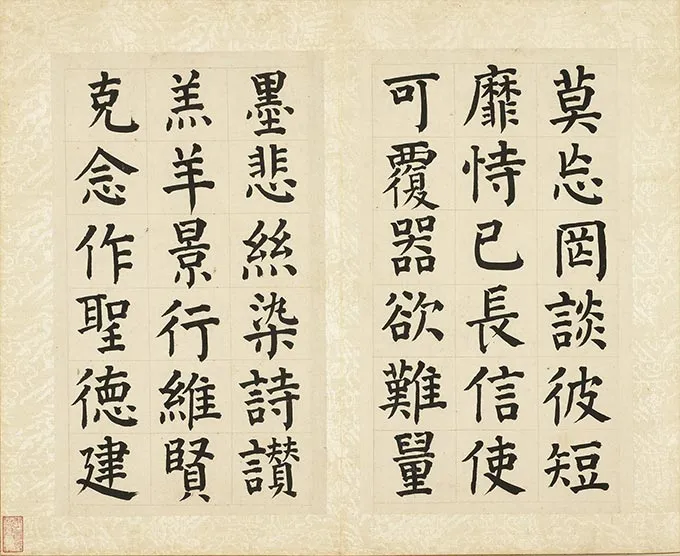 莫忘罔談彼短
靡恃己長信使
可覆器欲難量
墨悲絲染詩讃
羔羊景行維賢
克念作聖德建